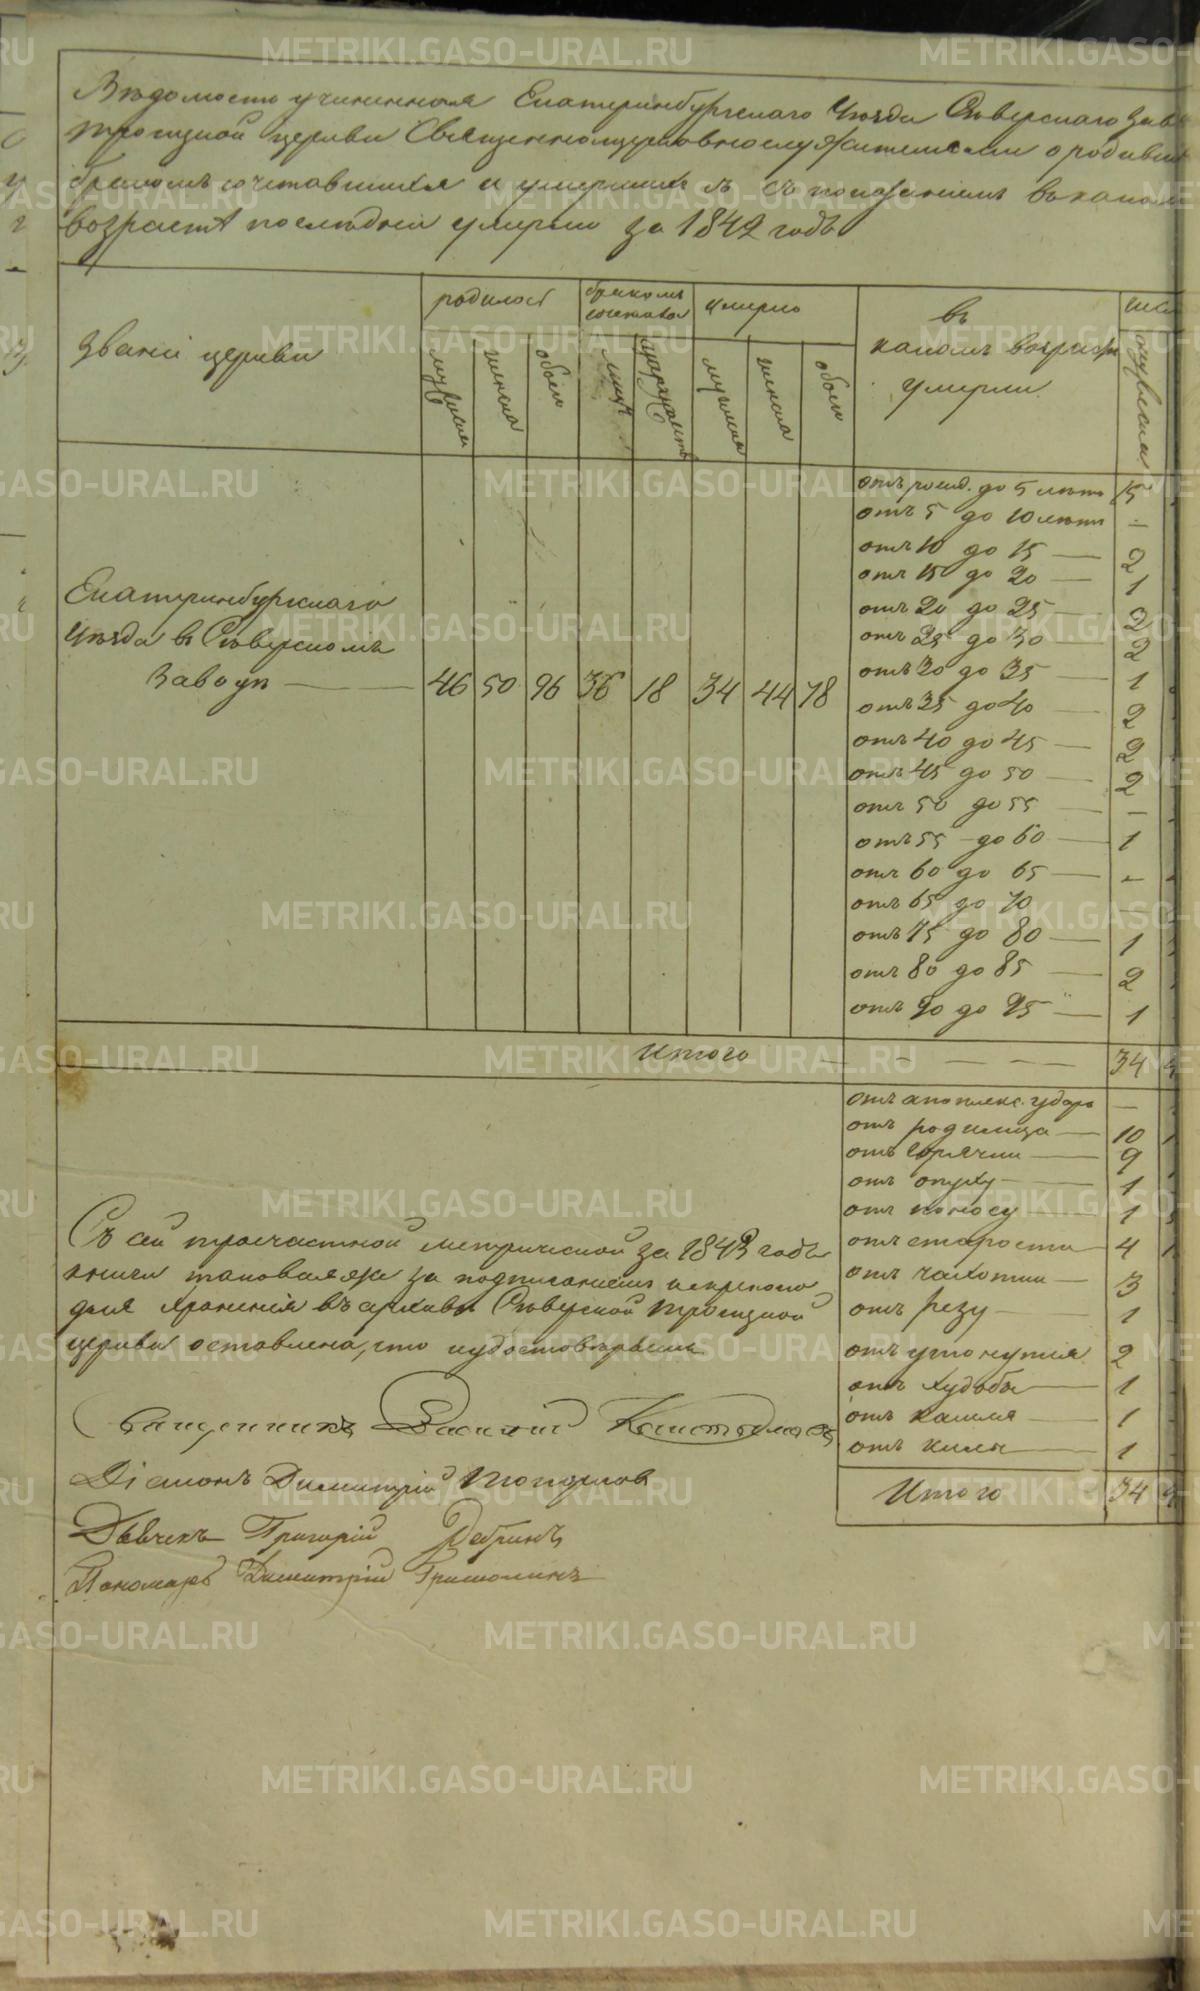 Вѣдомость учиненная Екатеринбургскаго Уѣзда Сѣверскаго Зав
Троицкой церкви Священноцерковнослужителями о родивш
бракомъ сочетавшихся и умершихъ съ показаніемъ въ каком
возрастѣ послѣдніи умерли за 1842 годъ
Званіе церкви
родилось
бракомъ
сочетавш
умерло
въ
какомъ возрастѣ
умерли
мужеска
женска
обоего
лицъ
мужеска
женска
обоего
мужеска
Екатеринбургскаго
Уѣзда въ Сѣверскомъ
Заводѣ — 46 50 96 36 18 34 44 78
отъ рожд. до 5 лѣтъ 15
отъ 5 до 10 лѣтъ —
отъ 10 до 15 — 2
отъ 15 до 20 — 1
отъ 20 до 25 — 2
отъ 25 до 30 — 2
отъ 30 до 35 — 1
отъ 35 до 40 — 2
отъ 40 до 45 — 2
отъ 45 до 50 — 2
отъ 50 до 55 — —
отъ 55 до 60 — 1
отъ 60 до 65 — —
отъ 65 до 70 —
отъ 75 до 80 — 1
отъ 80 до 85 — 2
отъ 90 до 95 — 1
Итого — — — — 34
отъ апоплекс. удара —
отъ родимца — 10
отъ горячки — 9
отъ опуху — 1
отъ поносу — 1
отъ старости — 4
отъ чахотки — 3
отъ резу — 1
отъ утонутія 2
отъ худобы — 1
отъ кашля — 1
отъ килы — 1
Итого 34
Съ сей троечастной метрической за 1842 годъ
книги таковая же за подписаніемъ
для храненія въ архивѣ Сѣверской Троицкой
церкви оставлена, что и удостовѣряемъ
Священникъ Василій
Діаконъ Димитрій Топорков
Дьячекъ Григорій Ребринъ
Пономарь Димитрій
METRIKI.GASO-URAL.RU